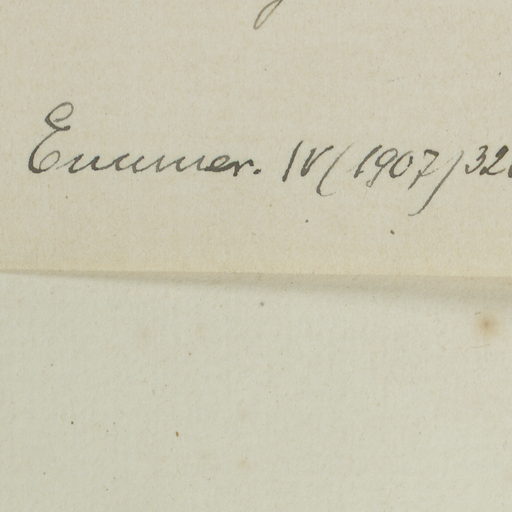 Enumer. IV (1907) 32